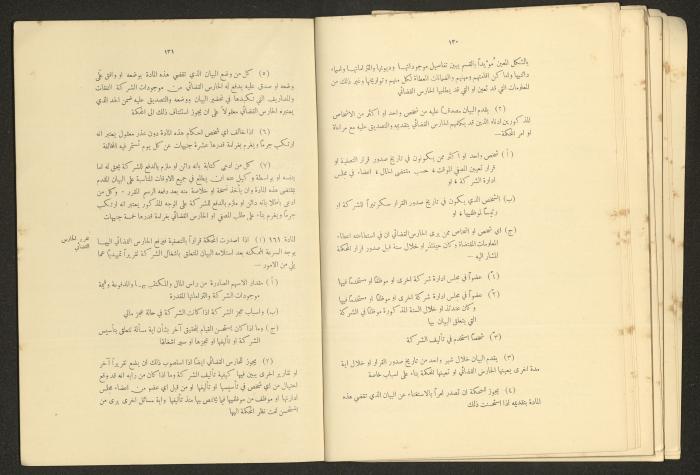 ١٣٠
بالشكل المعين مؤيداً بالقسم يبين تفاصيل موجوداتها وديونها والتزاماتها واسماء
دائنيها واماكن اقامتهم ومهنهم والضمانات المعطاة لكل منهم وتواريخها وغير ذلك من
المعلومات التي قد تعين او التي قد يطلبها الحارس القضائي
(٢) يقدم البيان مصدقاً عليه من شخص واحد او اكثر من الاشخاص
المذكورين ادناه الذين قد يكلفهم الحارس القضائي بتقديمه والتصديق عليه مع مراعاة
اي امر المحكمة—
(أ) شخص واحد او اكثر ممن يكونون في تاريخ صدور قرار التصفية او
قرار تعيين المصفي الموقت، حسب مقتضى الحال، اعضاء في مجلس
ادارة الشركة، او
(ب) الشخص الذي يكون في تاريخ صدور القرار سكرتيراً للشركة او
رئيساً لموظفيها، او
(ج) اي شخص او اشخاص ممن يرى الحارس القضائي ان في استطاعته اعطاء
المعلومات المقتضاة وكان حينئذ او خلال سنة قبل صدور قرار المحكمة
المشار اليه—
(١) عضواً في مجلس ادارة شركة اخرى او موظفاً او مستخدماً فيها
(٢) عضواً في مجلس ادارة شركة اخرى او موظفاً او مستخدماً فيها
وكان عندئذ او خلال السنة المذكورة موظفاً في الشركة
التي يتعلق البيان بها
(٣) شخصاً استخدم في تأليف الشركة
(٣) يقدم البيان خلال شهر واحد من تاريخ صدور القرار او خلال اية
مدة اخرى يعينها الحارس القضائي او تعينها المحكمة بناء على اسباب خاصة
(٤) يجوز للمحكمة ان تصدر امراً بالاستغناء عن البيان الذي تقضي هذه
المادة بتقديمه اذا استحسنت ذلك
١٣١
(٥) كل من وضع البيان الذي تقضي هذه المادة بوضعه او وافق على
وضعه او صدق عليه يدفع له الحارس القضائي من موجودات الشركة النفقات
والمصاريف التي تكبدها في تحضير البيان ووضعه والتصديق عليه ضمن الحد الذي
يعتبره الحارس القضائي معقولاً على ان يجوز استئناف ذلك الى المحكمة
(٦) اذا خالف اي شخص احكام هذه المادة دون عذر معقول يعتبر انه
ارتكب جرماً ويغرم بغرامة قدرها عشرة جنيهات عن كل يوم تستمر فيه المخالفة
(٧) كل من ادعى كتابة بانه دائن او ملزم بالدفع للشركة يحق له اما
بنفسه او بواسطة وكيل عنه ان يطلع في جميع الاوقات المناسبة على البيان المقدم
بمقتضى هذه المادة وان يأخذ نسخة او خلاصة منه بعد دفعه الرسم المقرر - وكل من
ادعى باطلا بانه دائن او ملزم بالدفع للشركة على الوجه المذكور يعتبر انه ارتكب
جرماً ويغرم بناء على طلب المصفي او الحارس القضائي بغرامة قدرها خمسة جنيهات
تقرير الحارس
القضائي
المادة ١٦١ (١) اذا اصدرت المحكمة قراراً بالتصفية فيرفع الحارس القضائي اليها
بوجه السرعة الممكنة بعد استلامه البيان المتعلق باشغال الشركة تقريراً تمهيدياً عما
يلي من الامور—
(أ) مقدار الاسهم الصادرة من رأس المال والمكتتب بها والمدفوعة وقيمة
موجودات الشركة والتزاماتها المقدرة
(ب) واسباب عجز الشركة اذا كانت الشركة في حالة عجز مالي
(ج) وما اذا كان استحسن القيام بتحقيق آخر بشأن اية مسألة تتعلق بتأسيس
الشركة او تأليفها او عجزها او سير اشغالها
(٢) يجوز للحارس القضائي ايضاً اذا استصوب ذلك ان يضع تقريراً آخر
او تقارير اخرى يبين فيها كيفية تأليف الشركة وما اذا كان من رأيه انه قد وقع
احتيال من اي شخص في تأسيسها او تأليفها او من قبل اي عضو من اعضاء مجلس
ادارتها او موظف من موظفيها فيما يختص بها منذ تأليفها واية مسائل اخرى يرى من
المستحسن لفت نظر المحكمة اليها